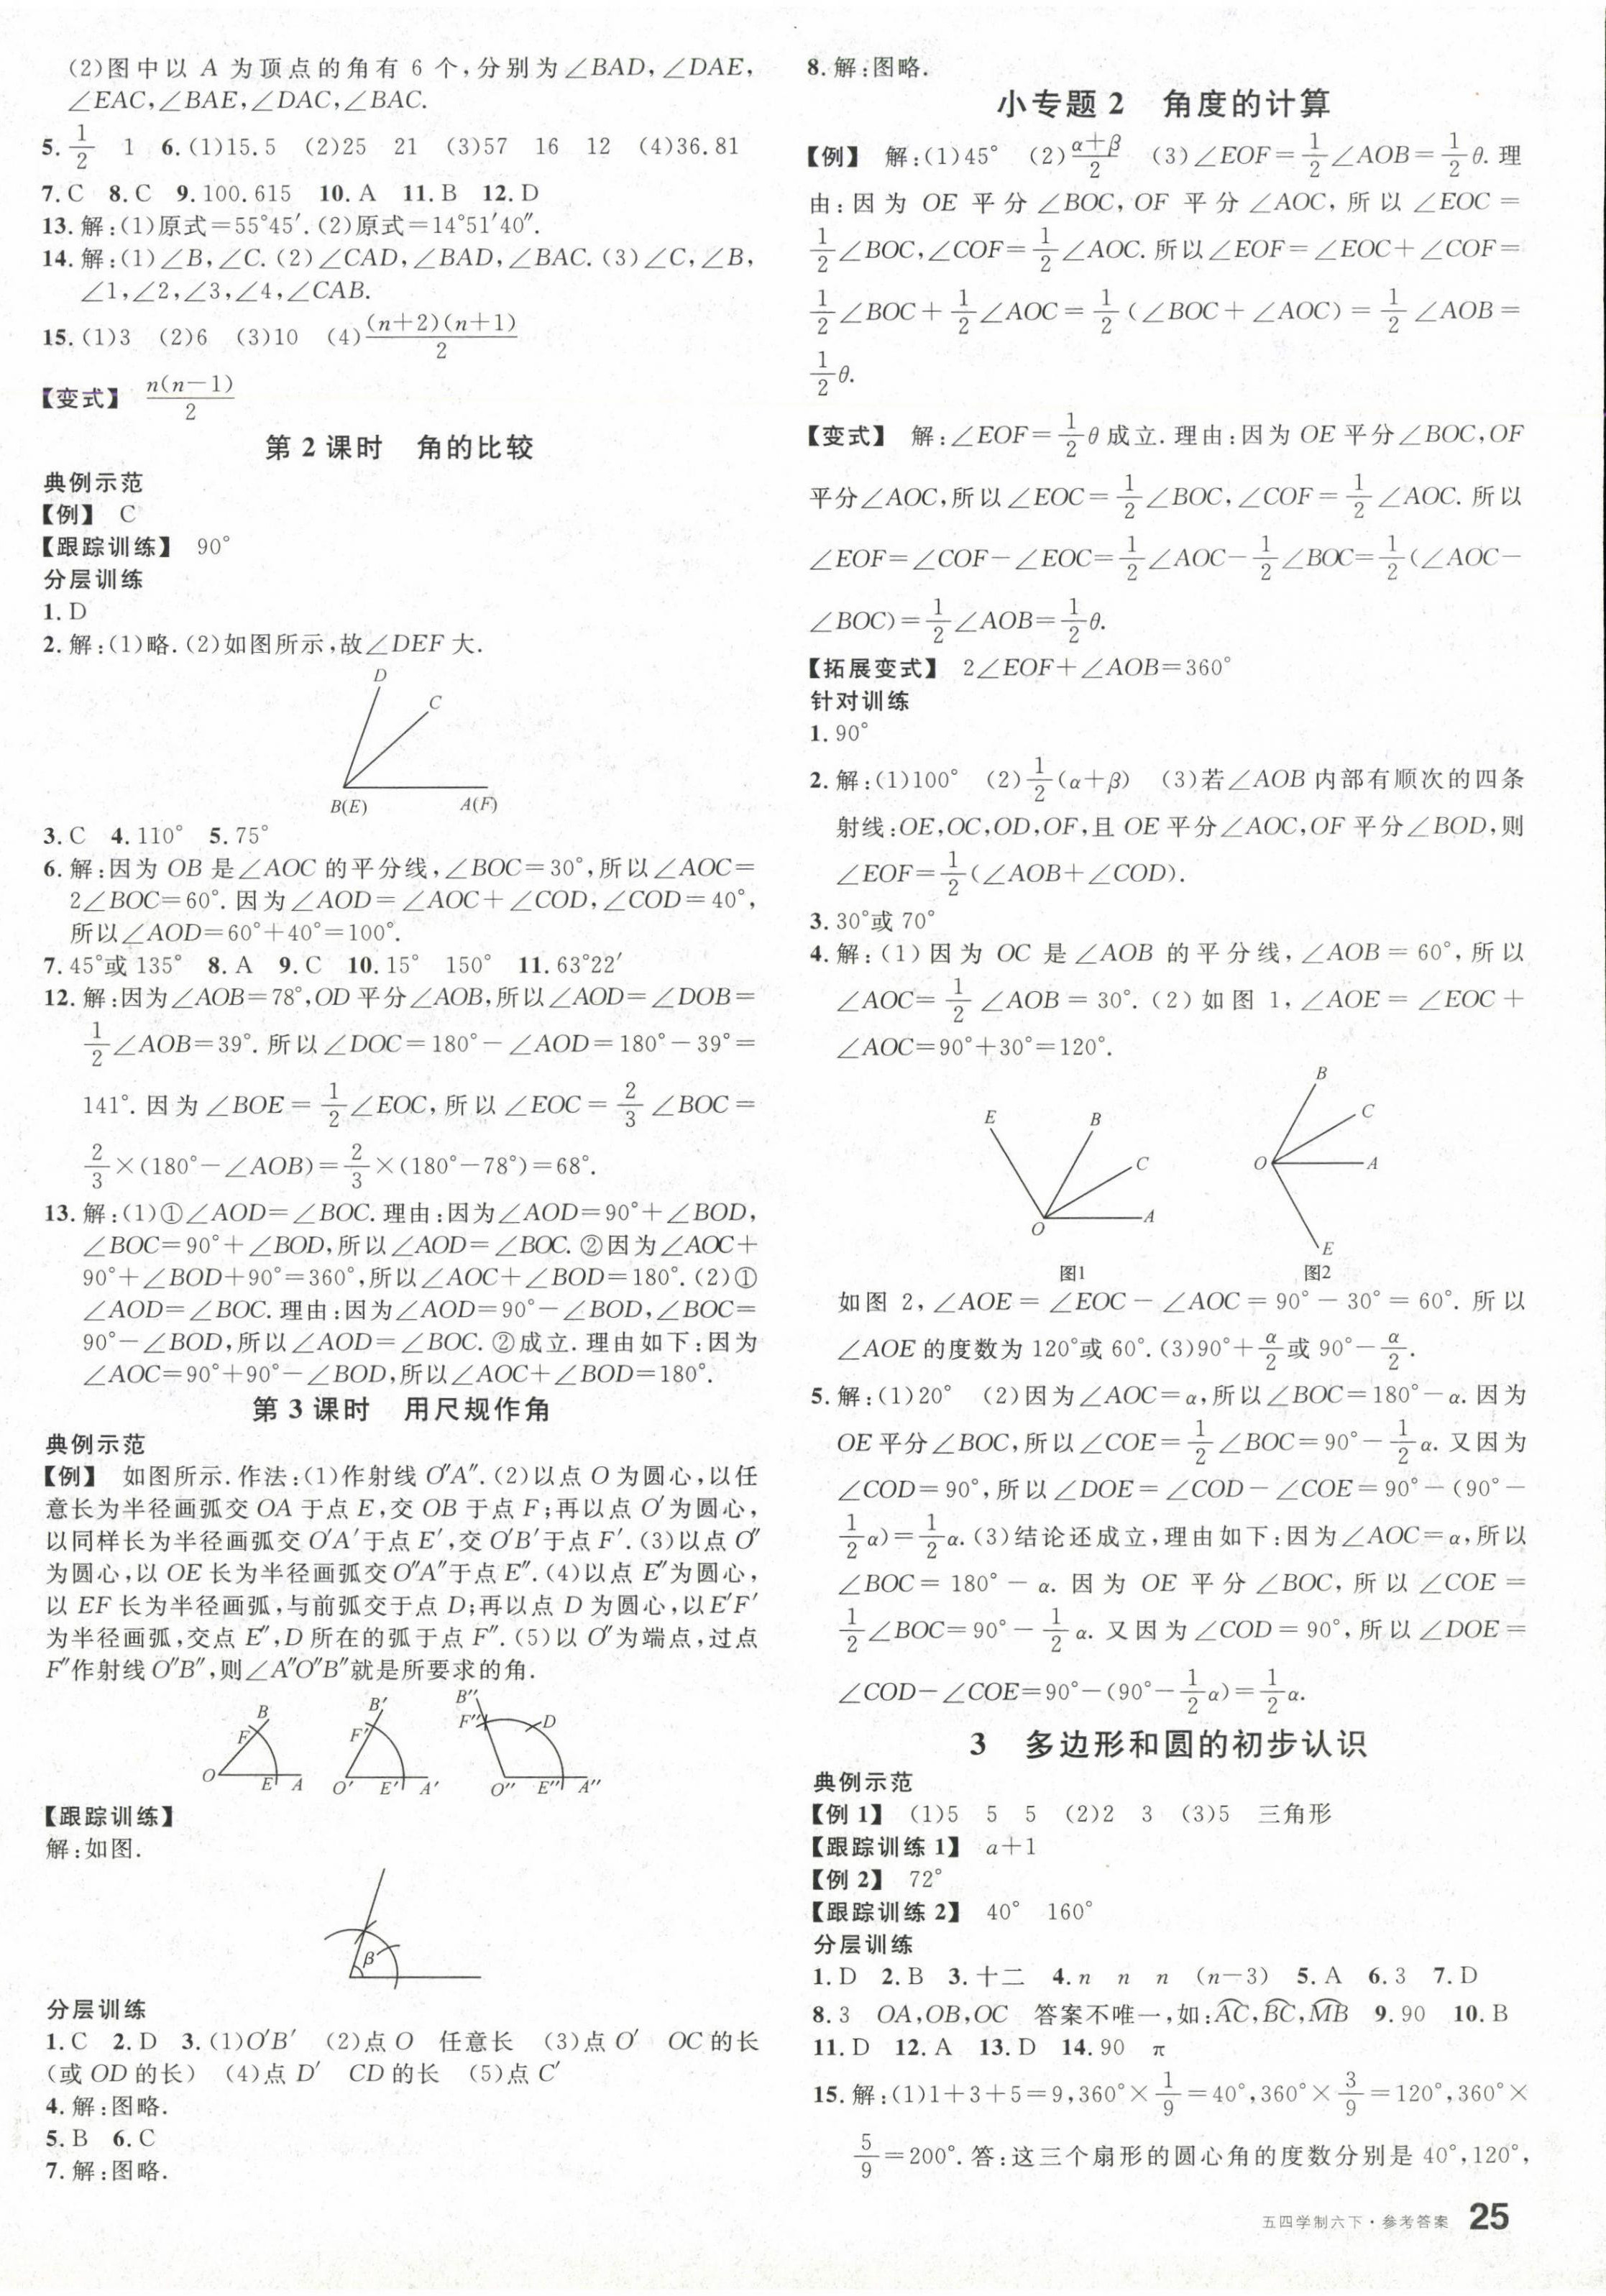 (2)图中以 A 为顶点的角有 6 个,分别为∠BAD,∠DAE,
∠EAC,∠BAE,∠DAC,∠BAC.
5. 1/2　1　6.(1)15.5　(2)25　21　(3)57　16　12　(4)36.81
7.C　8.C　9.100.615　10.A　11.B　12.D
13.解:(1)原式=55°45′.(2)原式=14°51′40″.
14.解:(1)∠B,∠C.(2)∠CAD,∠BAD,∠BAC.(3)∠C,∠B,
∠1,∠2,∠3,∠4,∠CAB.
15.(1)3　(2)6　(3)10　(4)(n+2)(n+1)/2
【变式】　n(n-1)/2
第 2 课时　角的比较
典例示范
【例】　C
【跟踪训练】　90°
分层训练
1.D
2.解:(1)略.(2)如图所示,故∠DEF 大.
D
C
B(E)　A(F)
3.C　4.110°　5.75°
6.解:因为 OB 是∠AOC 的平分线,∠BOC=30°,所以∠AOC=
2∠BOC=60°.因为∠AOD=∠AOC+∠COD,∠COD=40°,
所以∠AOD=60°+40°=100°.
7.45°或 135°　8.A　9.C　10.15°　150°　11.63°22′
12.解:因为∠AOB=78°,OD 平分∠AOB,所以∠AOD=∠DOB=
1/2∠AOB=39°.所以∠DOC=180°-∠AOD=180°-39°=
141°.因为∠BOE=1/2∠EOC,所以∠EOC=2/3∠BOC=
2/3×(180°-∠AOB)=2/3×(180°-78°)=68°.
13.解:(1)①∠AOD=∠BOC.理由:因为∠AOD=90°+∠BOD,
∠BOC=90°+∠BOD,所以∠AOD=∠BOC.②因为∠AOC+
90°+∠BOD+90°=360°,所以∠AOC+∠BOD=180°.(2)①
∠AOD=∠BOC.理由:因为∠AOD=90°-∠BOD,∠BOC=
90°-∠BOD,所以∠AOD=∠BOC.②成立.理由如下:因为
∠AOC=90°+90°-∠BOD,所以∠AOC+∠BOD=180°.
第 3 课时　用尺规作角
典例示范
【例】　如图所示.作法:(1)作射线 O″A″.(2)以点 O 为圆心,以任
意长为半径画弧交 OA 于点 E,交 OB 于点 F;再以点 O′为圆心,
以同样长为半径画弧交 O′A′于点 E′,交 O′B′于点 F′.(3)以点 O″
为圆心,以 OE 长为半径画弧交 O″A″于点 E″.(4)以点 E″为圆心,
以 EF 长为半径画弧,与前弧交于点 D;再以点 D 为圆心,以 E′F′
为半径画弧,交点 E″,D 所在的弧于点 F″.(5)以 O″为端点,过点
F″作射线 O″B″,则∠A″O″B″就是所要求的角.
B　B′　B″
F　F′　F″　D
O　E　A　O′　E′　A′　O″　E″　A″
【跟踪训练】
解:如图.
β
分层训练
1.C　2.D　3.(1)O′B′　(2)点 O　任意长　(3)点 O′　OC 的长
(或 OD 的长)　(4)点 D′　CD 的长　(5)点 C′
4.解:图略.
5.B　6.C
7.解:图略.
8.解:图略.
小专题 2　角度的计算
【例】　解:(1)45°　(2)(α+β)/2　(3)∠EOF=1/2∠AOB=1/2θ.理
由:因为 OE 平分∠BOC,OF 平分∠AOC,所以∠EOC=
1/2∠BOC,∠COF=1/2∠AOC.所以∠EOF=∠EOC+∠COF=
1/2∠BOC+1/2∠AOC=1/2(∠BOC+∠AOC)=1/2∠AOB=
1/2θ.
【变式】　解:∠EOF=1/2θ 成立.理由:因为 OE 平分∠BOC,OF
平分∠AOC,所以∠EOC=1/2∠BOC,∠COF=1/2∠AOC.所以
∠EOF=∠COF-∠EOC=1/2∠AOC-1/2∠BOC=1/2(∠AOC-
∠BOC)=1/2∠AOB=1/2θ.
【拓展变式】　2∠EOF+∠AOB=360°
针对训练
1.90°
2.解:(1)100°　(2)1/2(α+β)　(3)若∠AOB 内部有顺次的四条
射线:OE,OC,OD,OF,且 OE 平分∠AOC,OF 平分∠BOD,则
∠EOF=1/2(∠AOB+∠COD).
3.30°或 70°
4.解:(1)因为 OC 是∠AOB 的平分线,∠AOB=60°,所以
∠AOC=1/2∠AOB=30°.(2)如图 1,∠AOE=∠EOC+
∠AOC=90°+30°=120°.
E　B　C　O　A
图1
B　C　O　A　E
图2
如图 2,∠AOE=∠EOC-∠AOC=90°-30°=60°.所以
∠AOE 的度数为 120°或 60°.(3)90°+α/2或 90°-α/2.
5.解:(1)20°　(2)因为∠AOC=α,所以∠BOC=180°-α.因为
OE 平分∠BOC,所以∠COE=1/2∠BOC=90°-1/2α.又因为
∠COD=90°,所以∠DOE=∠COD-∠COE=90°-(90°-
1/2α)=1/2α.(3)结论还成立,理由如下:因为∠AOC=α,所以
∠BOC=180°-α.因为 OE 平分∠BOC,所以∠COE=
1/2∠BOC=90°-1/2α.又因为∠COD=90°,所以∠DOE=
∠COD-∠COE=90°-(90°-1/2α)=1/2α.
3　多边形和圆的初步认识
典例示范
【例 1】　(1)5　5　5　(2)2　3　(3)5　三角形
【跟踪训练 1】　a+1
【例 2】　72°
【跟踪训练 2】　40°　160°
分层训练
1.D　2.B　3.十二　4.n　n　n　(n-3)　5.A　6.3　7.D
8.3　OA,OB,OC　答案不唯一,如:A͡C,B͡C,M͡B　9.90　10.B
11.D　12.A　13.D　14.90　π
15.解:(1)1+3+5=9,360°×1/9=40°,360°×3/9=120°,360°×
5/9=200°.答:这三个扇形的圆心角的度数分别是 40°,120°,
五四学制六下·参考答案　25